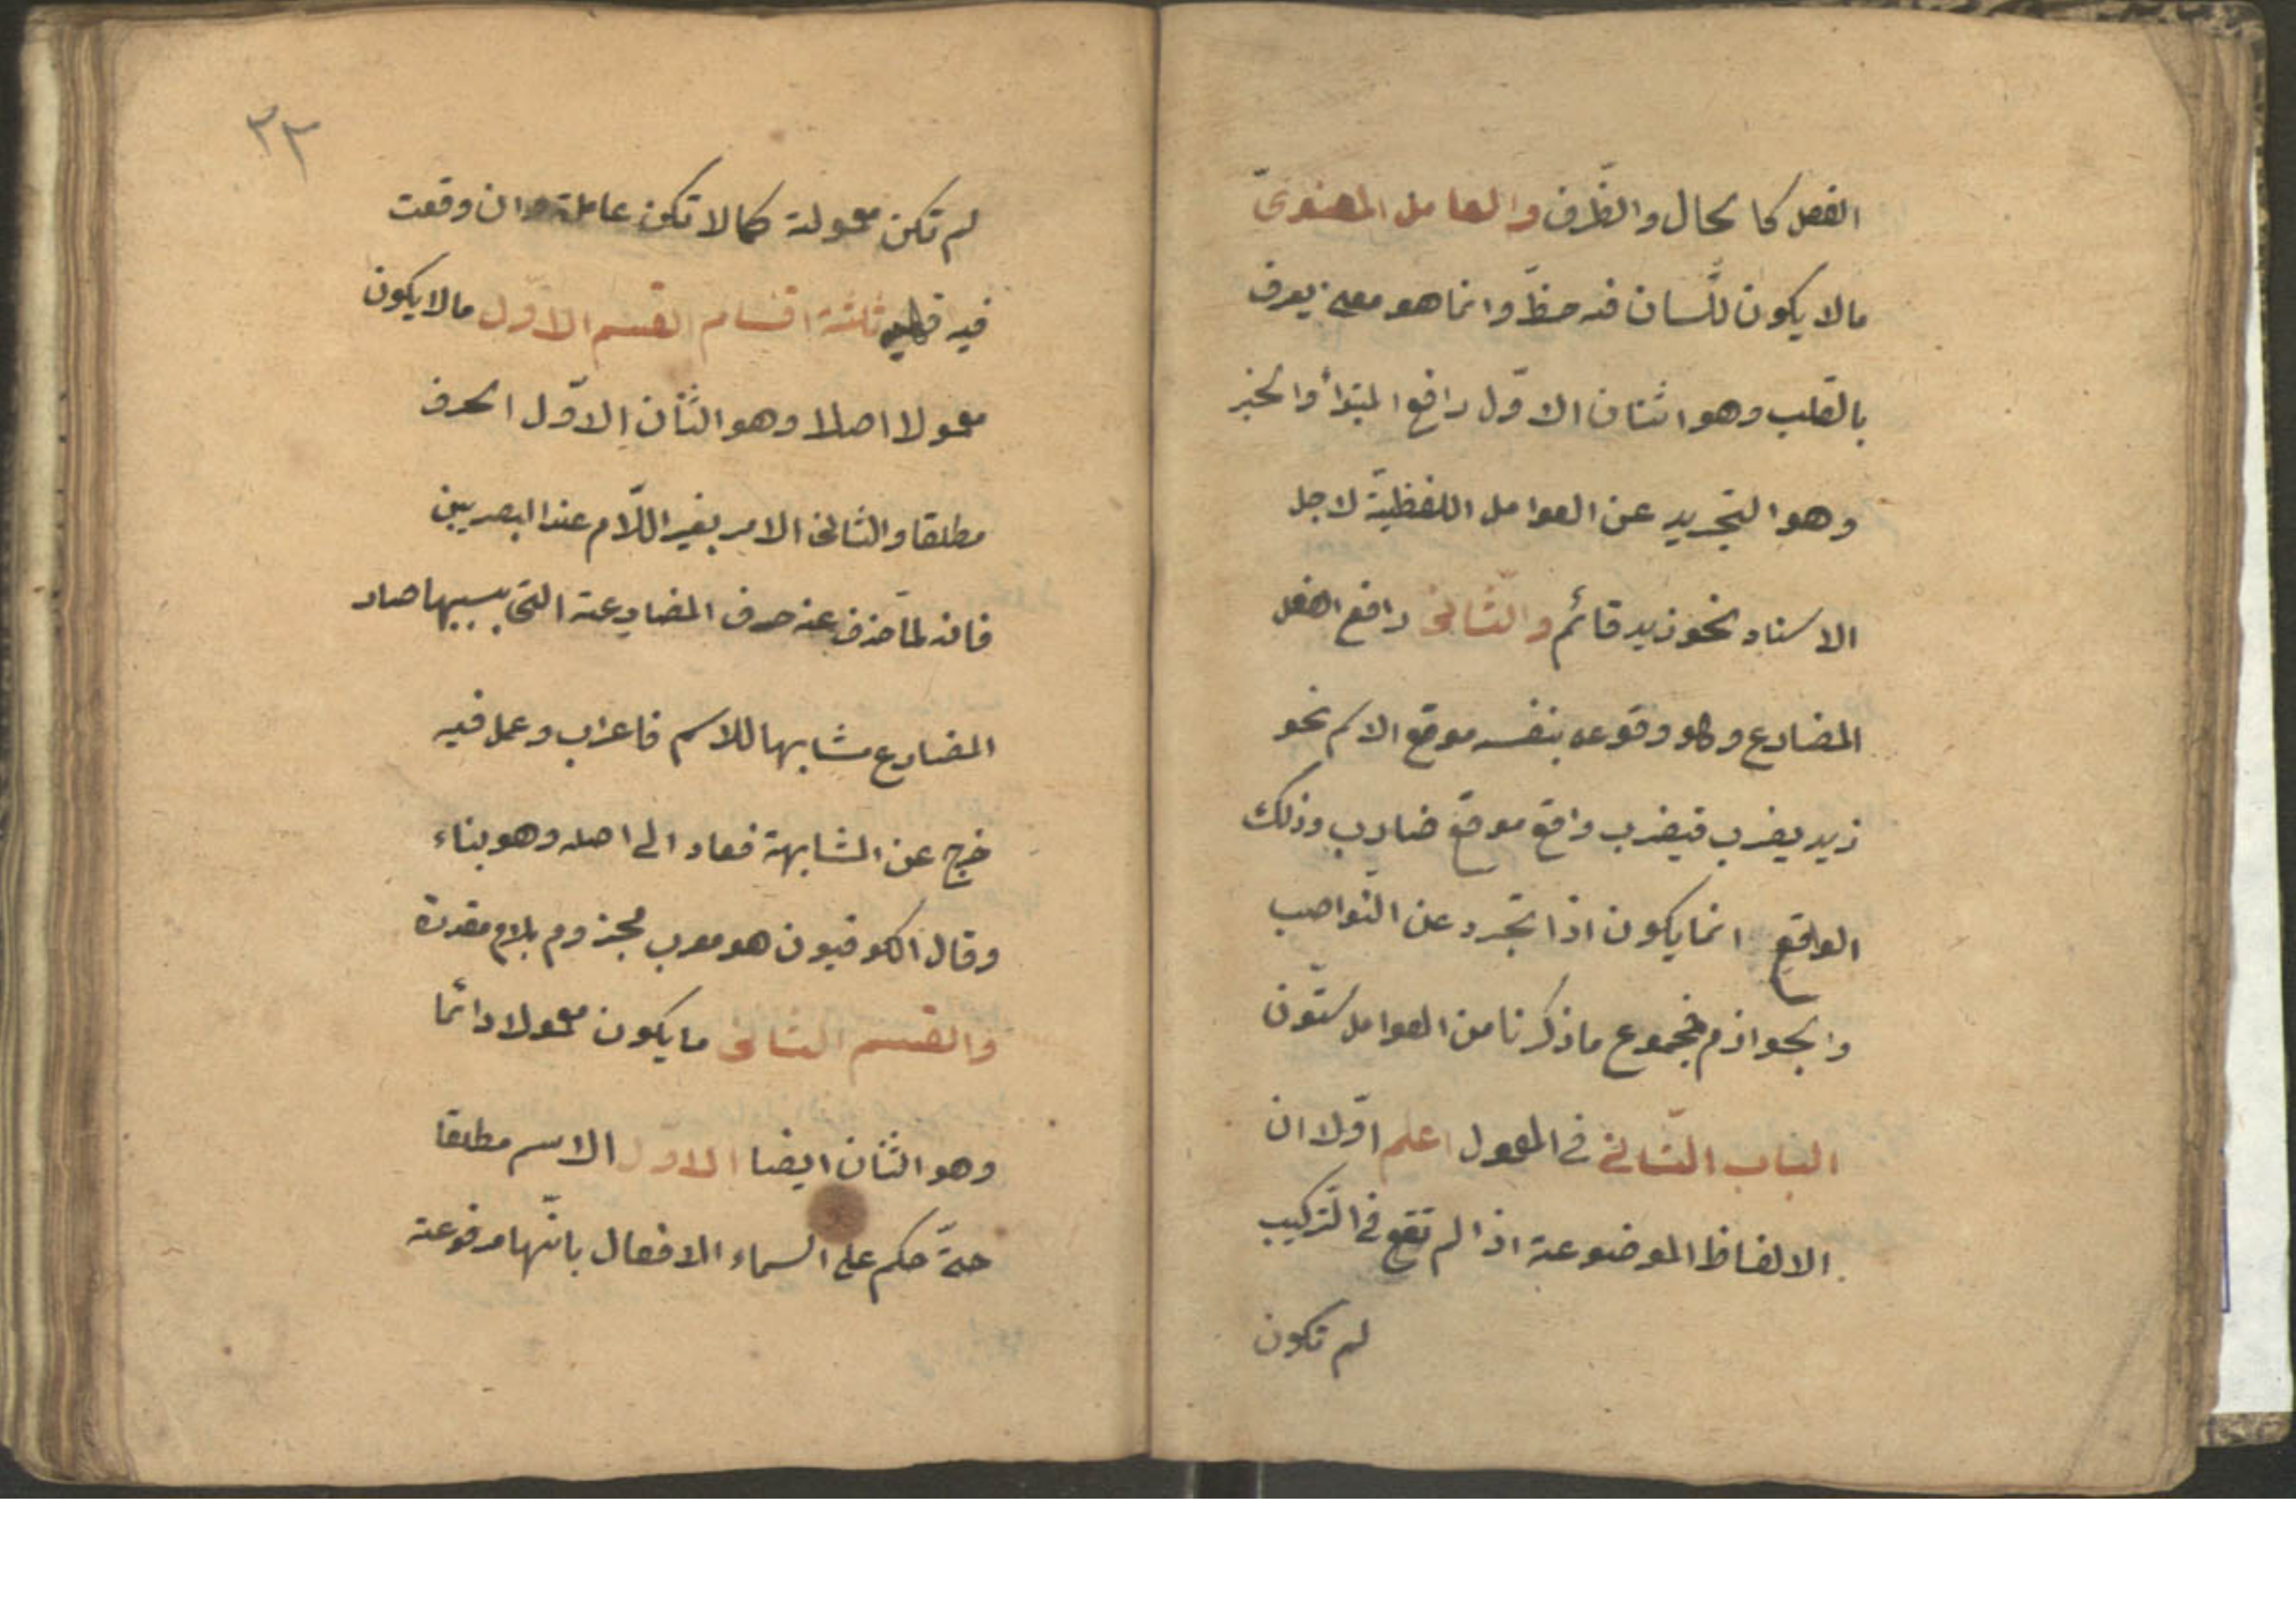 الفعل كالحال والظّرف والعامل المعنوىّ
ما لا يكون للّسان فيه حظّ وانما هو معنى يعرف
بالقلب وهو اثنان الاوّل رافع المبتدأ والخبر
وهو التجريد عن العوامل اللفظيّة لاجل
الاسناد نحو زيد قائم والثّانى رافع الفعل
المضارع وهو وقوعه بنفسه موقع الاسم نحو
زيد يضرب فيضرب واقع موقع ضارب وذلك
الواقع انما يكون اذا تجرد عن النّواصب
والجوازم فمجموع ما ذكرنا من العوامل ستّون
الباب الثّانى فى المعمول اعلم اوّلا ان
الالفاظ الموضوعة اذا لم تقع فى التّركيب
لم تكون
٣٢
لم تكن معمولة كما لا تكون عاملة وان وقعت
فيه ثلثة اقسام القسم الاوّل ما لا يكون
معمولا اصلا وهو اثنان الاوّل الحرف
مطلقا والثانى الامر بغير اللّام عند البصريين
فانه لمّا حذف عنه حرف المضارعة التى بسببها صار
المضارع مشابها للاسم فاعرب وعمل فيه
خرج عن المشابهة فعاد الى اصله وهو بناء
وقال الكوفيون هو معرب مجزوم بلام مقدرة
والقسم الثانى ما يكون معمولا دائما
وهو اثنان ايضا الاوّل الاسم مطلقا
حتّى حكم على اسماء الافعال بانّها مرفوعة